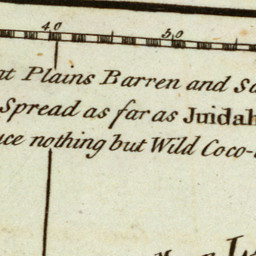 40 50
at Plains Barren and
Spread as far as Juidah
nothing but Wild Coco-